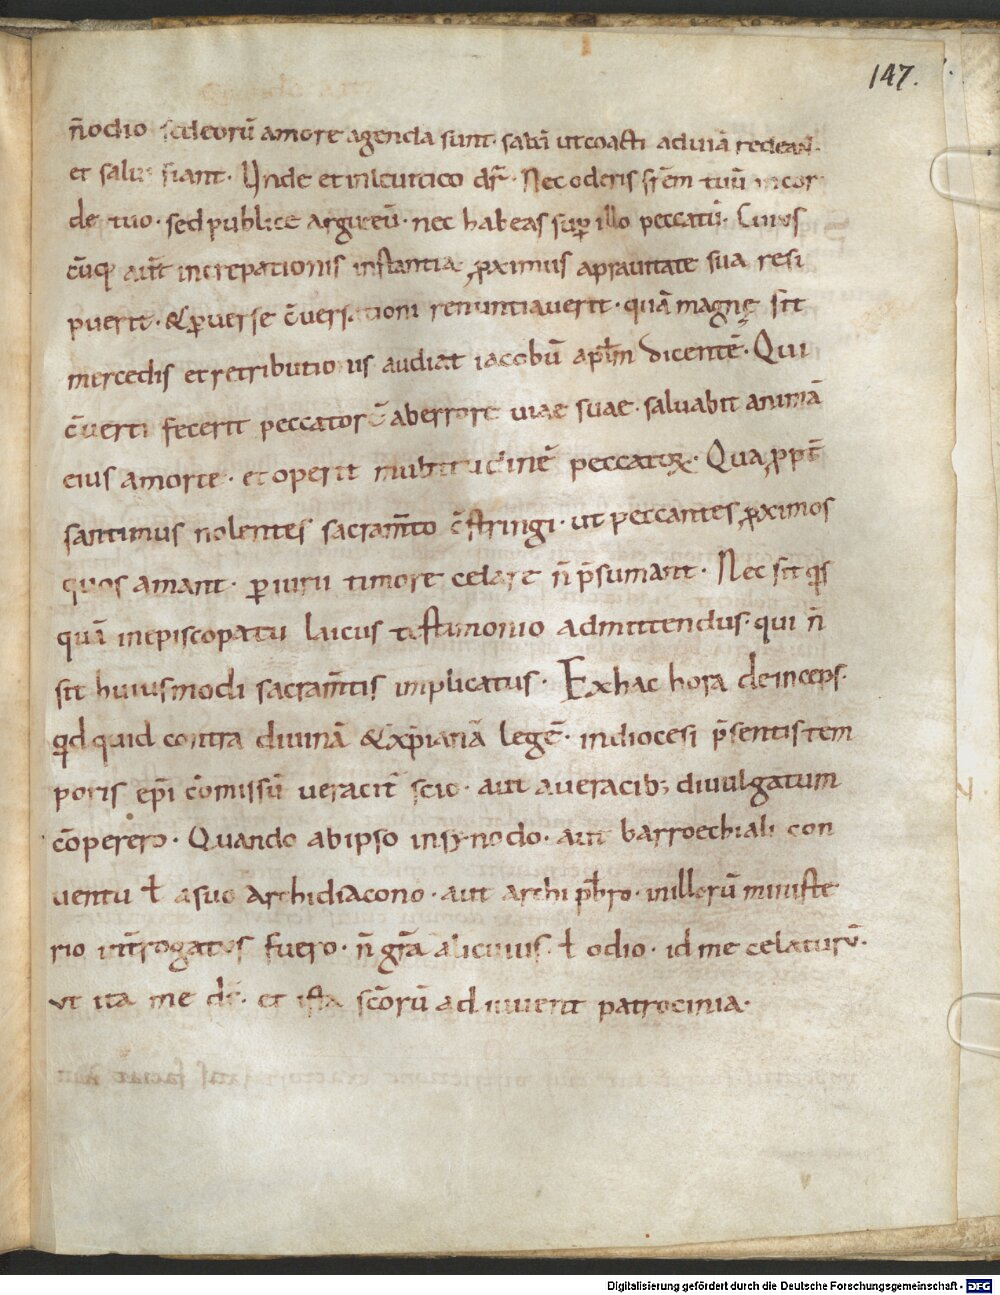 147.
n̄ odio sed eorū amore agenda sunt. satā ut coacti ad viā redeant.
et salvi fiant. Unde et in levitico dr̄. Nec oderis fr̄em tuū in cor
de tuo. sed publice argue eū. nec habeas sup illo peccatū. Cuius
cūq; aūt increpationis instantia, proximus a pravitate sua resi
puerit. & perverse c̄versationi renuntiaverit. quā magnę sīt
mercedis et retributionis audiat iacobū ap̄lm dicentē. Qui
c̄verti fecerit peccatorē ab errore viae suae. salvabit animā
eius a morte. et operit multitudinē peccatorꝝ. Qua propt̄
sancimus nolentes sacram̄to c̄stringi. ut peccantes proximos
quos amant. periurii timore celare n̄ p̄sumant. Nec sīt q̄s
quā in episcopatu laicus testimonio admittendus. qui n̄
sit huiusmodi sacram̄tis implicatus. Ex hac hora deinceps.
q̄d quid contra divinā & xp̄ianā legē. in diocesi p̄sentis tem
poris ep̄i c̄missū veracit̄ scio. aut a veracib; divulgatum
c̄perero. Quando ab ipso in synodo. aut barroechiali con
ventu ł a suo archidiacono. aut archi pb̄ro. in illorū ministe
rio int̄rogatus fuero. n̄ gr̄a alicuius. ł odio. id me celaturū.
ut ita me dī. et ista sc̄orū adiuvent patrocinia.
Digitalisierung gefördert durch die Deutsche Forschungsgemeinschaft - DFG